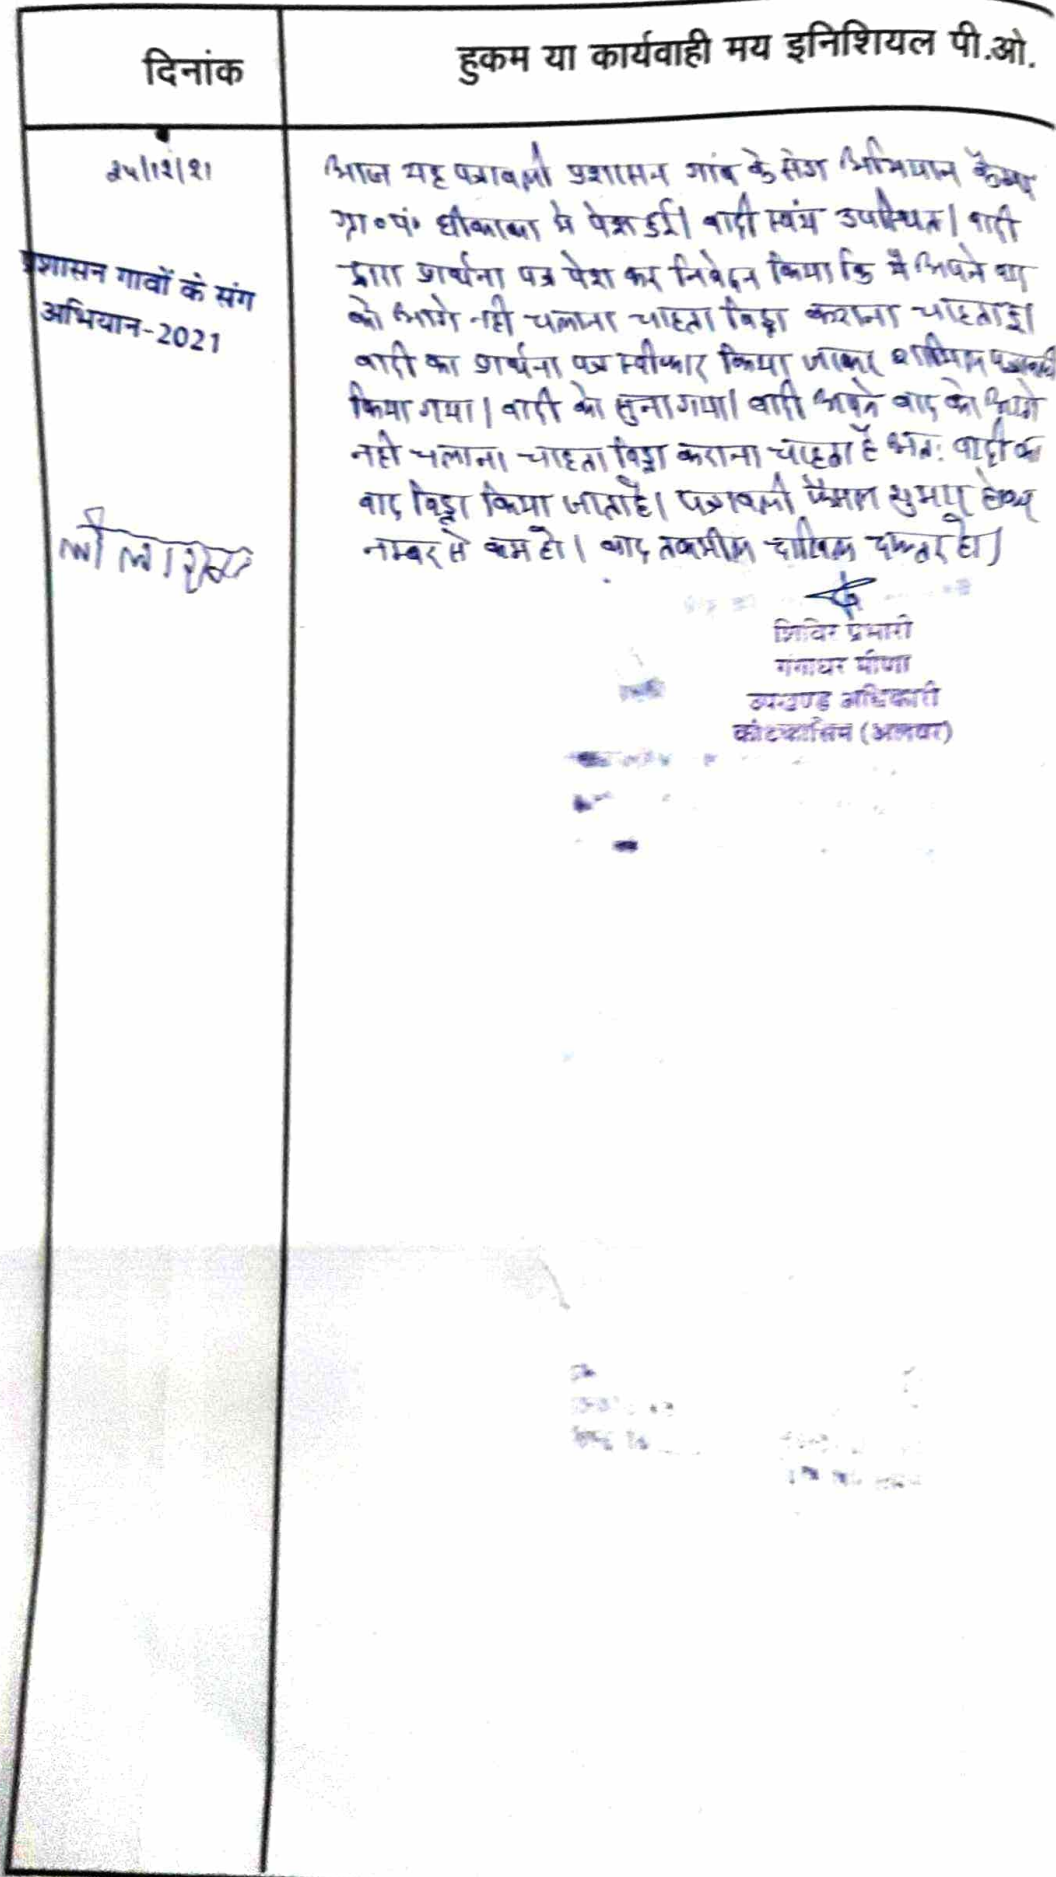 दिनांक
हुकम या कार्यवाही मय इनिशियल पी.ओ.
प्रशासन गावों के संग
अभियान-2021
आज यह पत्रावली प्रशासन गांव के संग अभियान कैम्प
ग्रा०पं० में पेश हुई। वादी स्वंय उपस्थित। वादी
द्वारा प्रार्थना पत्र पेश कर निवेदन किया कि मै अपने वाद
को आगे नही चलाना चाहता विड्रा कराना चाहता हू।
वादी का प्रार्थना पत्र स्वीकार किया जाकर शामिल पत्रावली
किया गया। वादी को सुना गया। वादी अपने वाद को आगे
नही चलाना चाहता विड्रा कराना चाहता है अतः वादी का
वाद विड्रा किया जाता है। पत्रावली फैसल शुमार होकर
नम्बर से कम हो। बाद तकमील दाखिल दफ्तर हो।
शिविर प्रभारी
गंगाधर मीणा
उपखण्ड अधिकारी
कोटकासिम (अलवर)